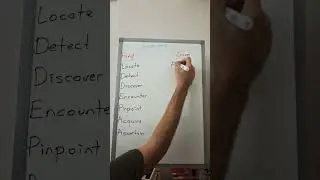 Find
Locate
Detect
Discover
Encounter
Pinpoint
Acquire
Ascertain
Locate
Detect
Discover
Encounter
Pinpoint